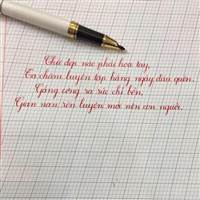 Chữ đẹp nào phải hoa tay,
Ta chăm luyện tập hàng ngày đấu quên.
Gắng công ra sức chí bền,
Gian nan rèn luyện mới nên con người.